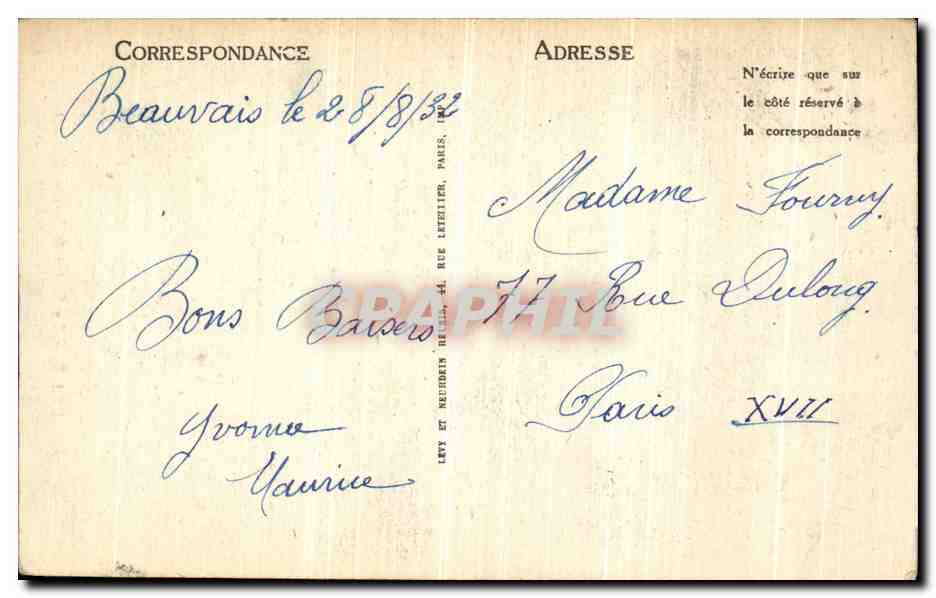 CORRESPONDANCE
Beauvais le 28/8/32
Bons Baisers
Yvonne
Maurice
LÉVY ET NEURDEIN RÉUNIS, 44, RUE LETELLIER, PARIS, IMP
ADRESSE
N'écrire que sur
le côté réservé à
la correspondance
Madame Fourny
77 Rue Dulong
Paris XVII
CPAPHIL